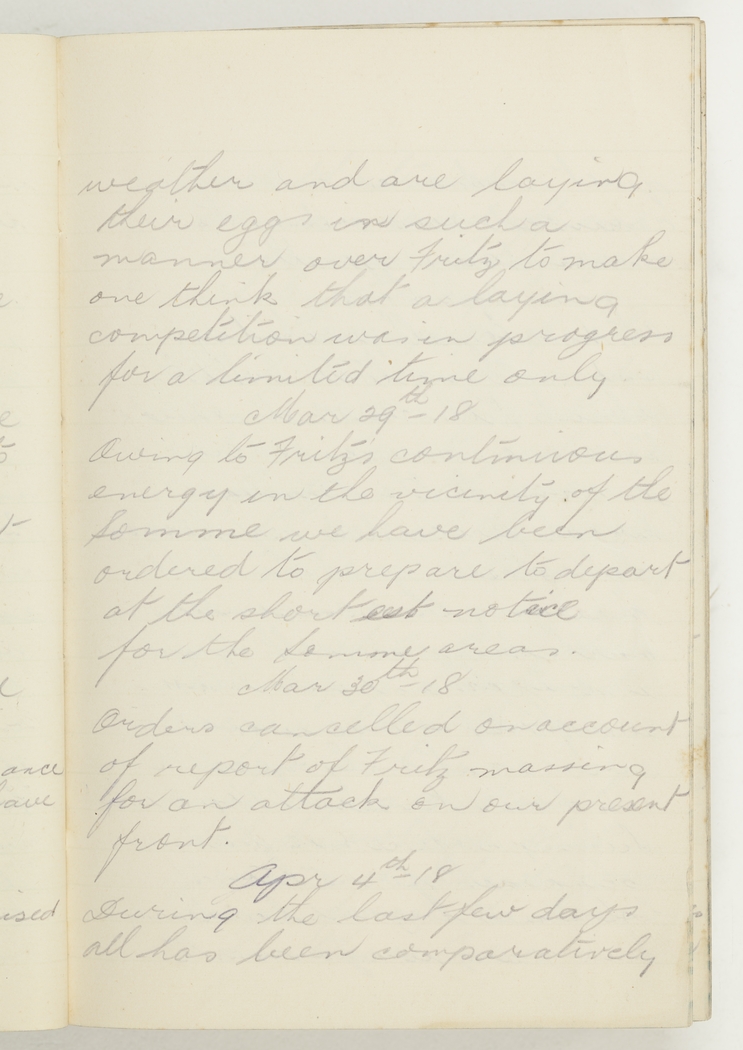 weather and are laying
their eggs in such a
manner over Fritz to make
one think that a laying
competition was in progress
for a limited time only
Mar 29th-18
Owing to Fritz's continuous
energy in the vicinity of the
Somme we have been
ordered to prepare to depart
at the shortest notice
for the Somme areas.
Mar 30th-18
Orders cancelled on account
of report of Fritz massing
for an attack on our present
front.
Apr 4th-18
During the last few days
all has been comparatively
ance
have
ised